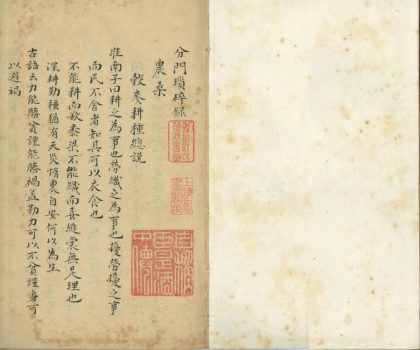 分門瑣碎錄
農桑
穀麥耕種總說
淮南子曰耕之為事也勞織之為事也擾勞擾之事
而民不舍者知其可以衣食也
不能耕而欲黍粱不能織而喜縫裳無是理也
深耕勤種猶有天災惰農自安何以為生
古語云力能勝貧謹能勝禍蓋勤力可以不貧謹身可
以避禍